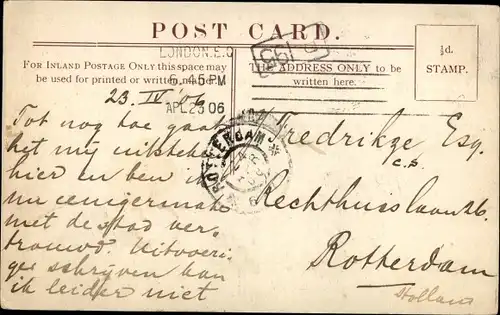 POST CARD.
FOR INLAND POSTAGE ONLY this space may
be used for printed or written
THE ADDRESS ONLY to be
written here.
½d.
STAMP.
LONDON. E.C
6.45 PM
AP 23 06
ROTTERDAM
23 IV 06
Tot nog toe gaat
het mij uitstekend
hier en ben ik
nu eenigermate
met de stad ver-
trouwd. Uitvoeri-
ge schrijven kan
ik leider niet
Fredrikze Esq.
Rotterdam
Holland